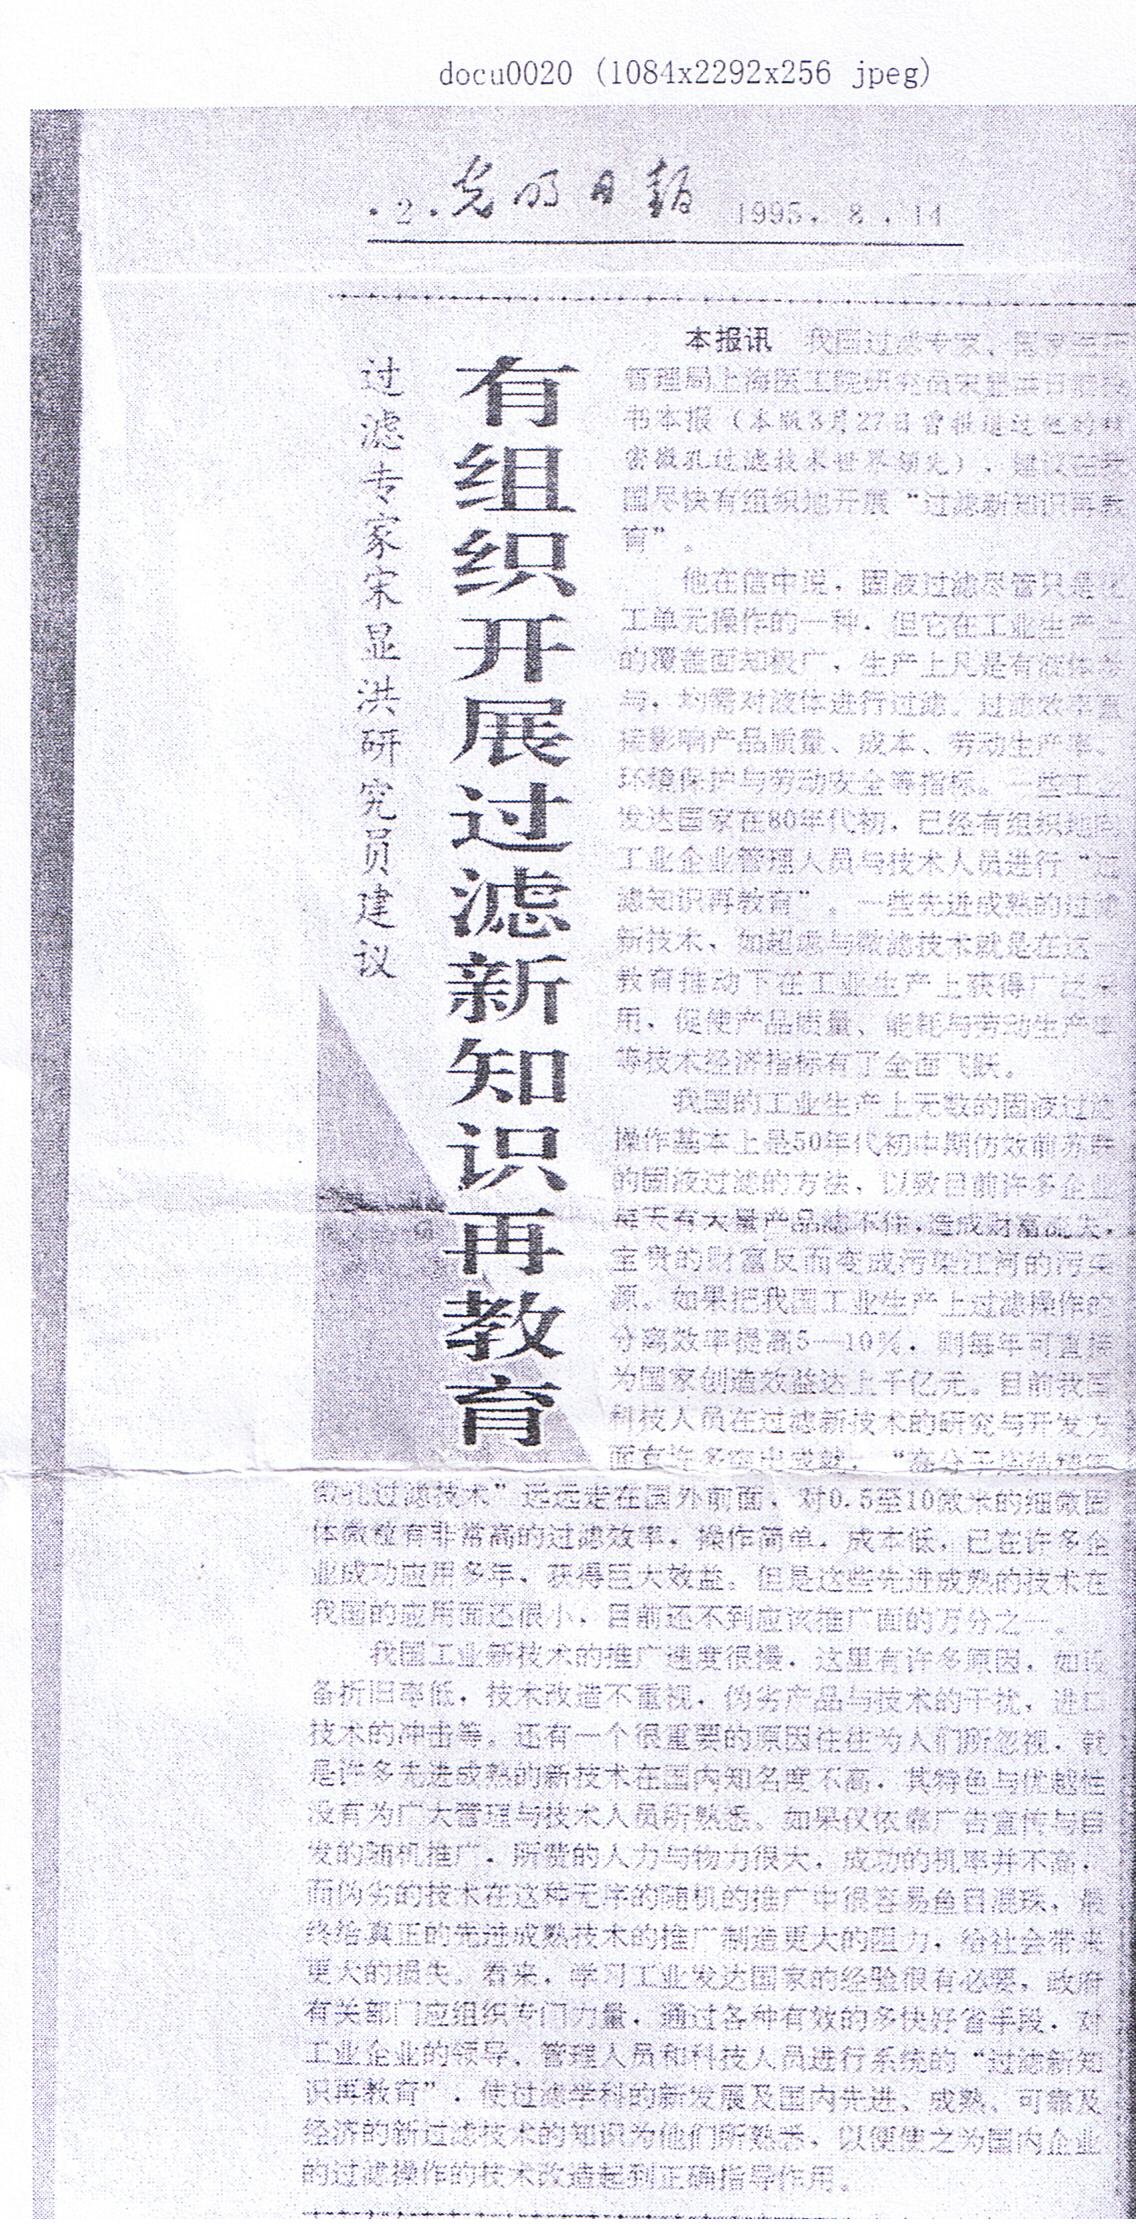 docu0020 (1084x2292x256 jpeg)
·2·光明日报 1995.8.14
过滤专家宋显洪研究员建议
有组织开展过滤新知识再教育
本报讯 我国过滤专家、国家医药
管理局上海医工院研究员宋显洪日前致
书本报（本版3月27日曾报道过他的精
密微孔过滤技术世界领先），建议在我
国尽快有组织地开展“过滤新知识再教
育”。
他在信中说，固液过滤尽管只是化
工单元操作的一种，但它在工业生产上
的覆盖面却极广，生产上凡是有液体参
与，均需对液体进行过滤。过滤效率直
接影响产品质量、成本、劳动生产率、
环境保护与劳动安全等指标。一些工业
发达国家在80年代初，已经有组织地向
工业企业管理人员与技术人员进行“过
滤知识再教育”。一些先进成熟的过滤
新技术、如超滤与微滤技术就是在这一
教育推动下在工业生产上获得广泛采
用，促使产品质量、能耗与劳动生产率
等技术经济指标有了全面飞跃。
我国的工业生产上无数的固液过滤
操作基本上是50年代初中期仿效前苏联
的固液过滤的方法，以致目前许多企业
每天有大量产品滤不住，造成财富流失，
宝贵的财富反而变成污染江河的污染
源。如果把我国工业生产上过滤操作的
分离效率提高5—10%，则每年可直接
为国家创造效益达上千亿元。目前我国
科技人员在过滤新技术的研究与开发方
面有许多突出成就，“高分子烧结精密
微孔过滤技术”远远走在国外前面，对0.5至10微米的细微固
体微粒有非常高的过滤效率，操作简单，成本低，已在许多企
业成功应用多年，获得巨大效益。但是这些先进成熟的技术在
我国的应用面还很小，目前还不到应该推广面的万分之一。
我国工业新技术的推广速度很慢，这里有许多原因，如设
备折旧率低，技术改造不重视，伪劣产品与技术的干扰，进口
技术的冲击等。还有一个很重要的原因往往为人们所忽视，就
是许多先进成熟的新技术在国内知名度不高，其特色与优越性
没有为广大管理与技术人员所熟悉。如果仅依靠广告宣传与自
发的随机推广，所费的人力与物力很大，成功的机率并不高，
而伪劣的技术在这种无序的随机的推广中很容易鱼目混珠，最
终给真正的先进成熟技术的推广制造更大的阻力，给社会带来
更大的损失。看来，学习工业发达国家的经验很有必要，政府
有关部门应组织专门力量，通过各种有效的多快好省手段，对
工业企业的领导、管理人员和科技人员进行系统的“过滤新知
识再教育”，使过滤学科的新发展及国内先进、成熟、可靠及
经济的新过滤技术的知识为他们所熟悉，以便使之为国内企业
的过滤操作的技术改造起到正确指导作用。